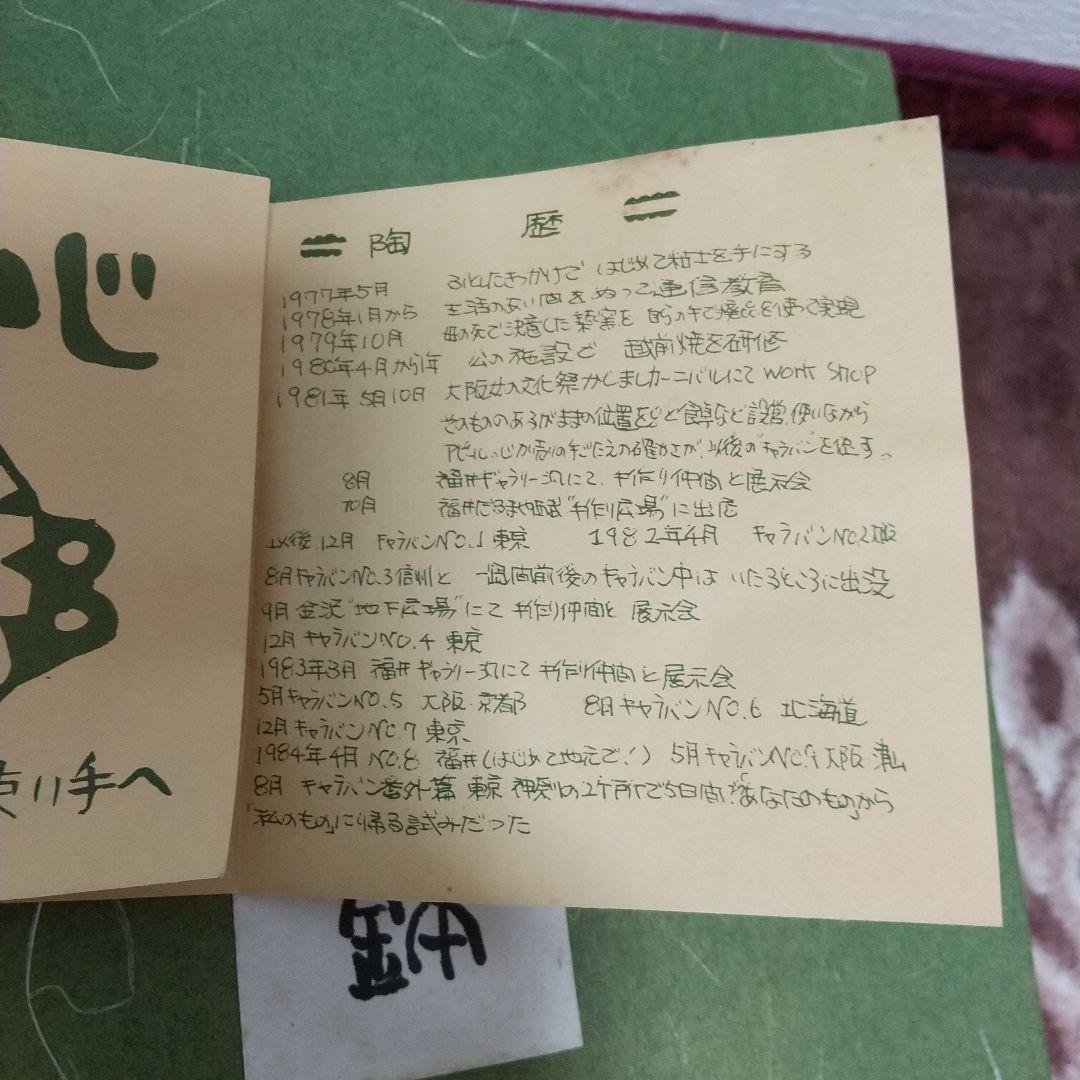 じ
使い手へ
陶 歴
1977年5月 ふとしたきっかけで はじめて粘土を手にする
1978年1月から 生活のあい間をぬって通信教育
1979年10月 母の死で決意した築窯を 自らの手で廃品を使って実現
1980年4月から1年 公の施設で 越前焼を研修
1981年5月10日 大阪女の文化祭かしましカーニバルにて work shop
そのもののあるがままの位置をと食卓など設営、使いながら
アピール。じか売りの手ごたえの確かさが、以後の"キャラバン"を促す。
8月 福井ギャラリー丸にて、手作り仲間と展示会
10月 福井だるまや西武"手作り広場"に出店
以後12月 キャラバンNO.1 東京 1982年4月 キャラバンNO.2
8月キャラバンNO.3信州と 一週間前後のキャラバン中は いたるところに出没
9月 金沢"地下広場"にて 手作り仲間と 展示会
12月 キャラバンNO.4 東京
1983年3月 福井ギャラリー丸にて 手作り仲間と展示会
5月キャラバンNO.5 大阪・京都 8月キャラバンNO.6 北海道
12月キャラバンNO.7 東京、
1984年4月 NO.8 福井(はじめて地元で!) 5月キャラバンNO.9 大阪
8月 キャラバン番外篇 東京 の2ケ所で5日間"「あなたのもの」から
「私のもの」に帰る試みだった